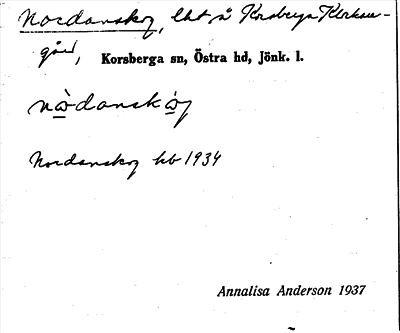 Nordanskog, lht å Korsberga Klockare-
gård, Korsberga sn, Östra hd, Jönk. l.
nòdanskóg
Nordanskog hb 1934
Annalisa Anderson 1937